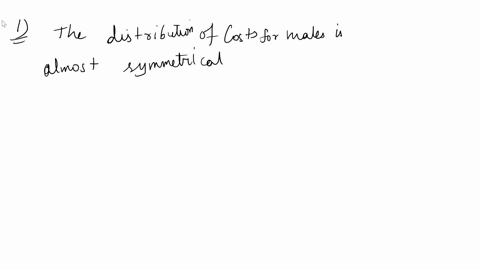 1) The distribution of Costs for males is
almost symmetrical